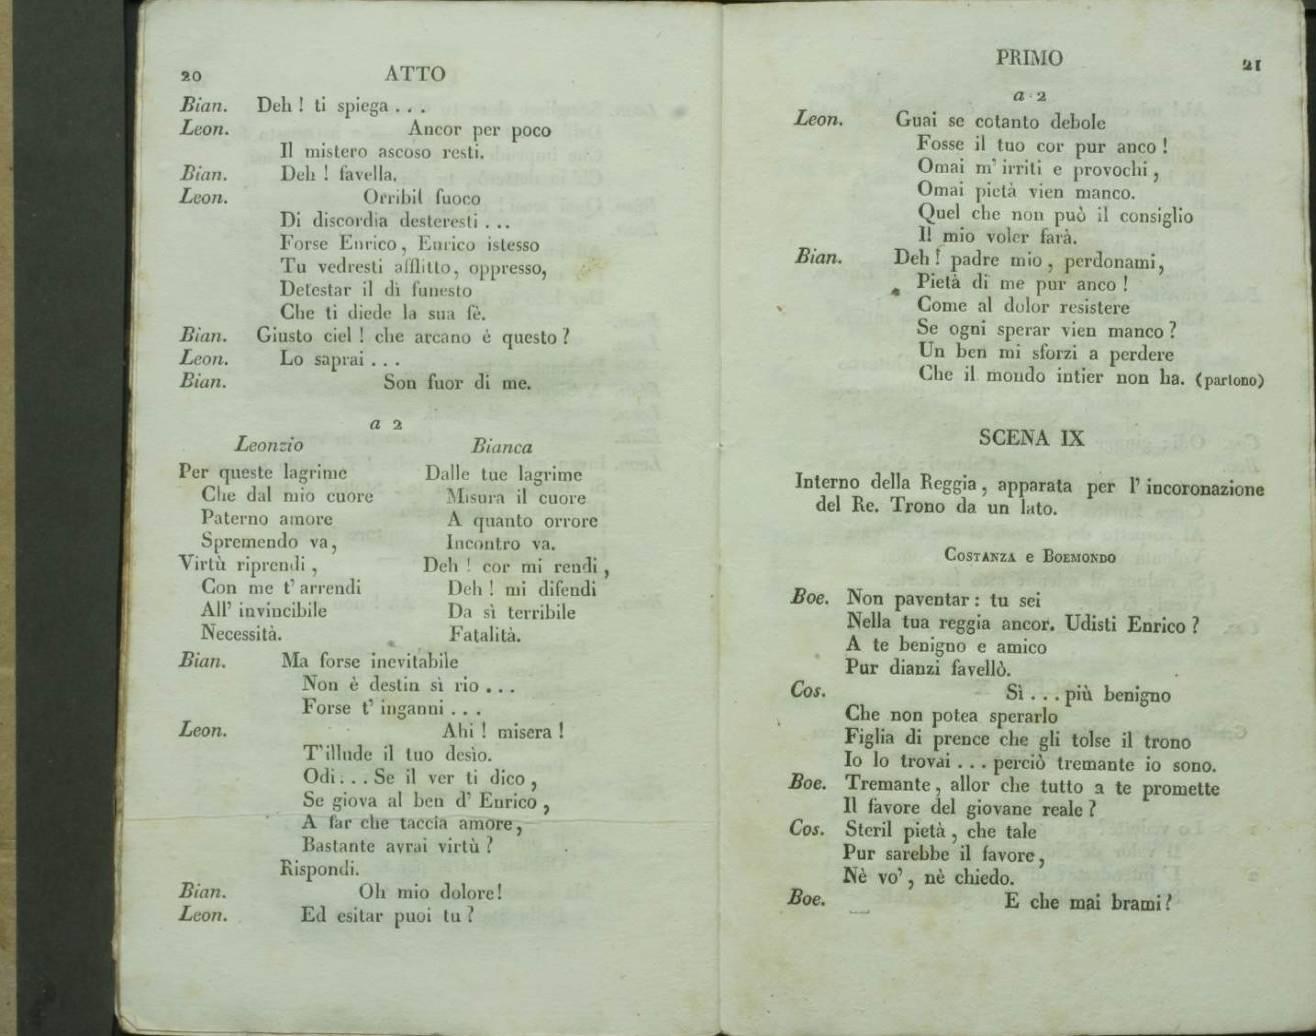 20 ATTO
Bian. Deh ! ti spiega . . .
Leon. Ancor per poco
Il mistero ascoso resti.
Bian. Deh ! favella.
Leon. Orribil fuoco
Di discordia desteresti . . .
Forse Enrico, Enrico istesso
Tu vedresti afflitto, oppresso,
Detestar il dì funesto
Che ti diede la sua fè.
Bian. Giusto ciel ! che arcano è questo ?
Leon. Lo saprai . . .
Bian. Son fuor di me.
a 2
Leonzio
Per queste lagrime
Che dal mio cuore
Paterno amore
Spremendo va,
Virtù riprendi,
Con me t' arrendi
All' invincibile
Necessità.
Bianca
Dalle tue lagrime
Misura il cuore
A quanto orrore
Incontro va.
Deh ! cor mi rendi,
Deh ! mi difendi
Da sì terribile
Fatalità.
Bian. Ma forse inevitabile
Non è destin sì rio . . .
Forse t' inganni . . .
Leon. Ahi ! misera !
T' illude il tuo desìo.
Odi . . . Se il ver ti dico,
Se giova al ben d' Enrico,
A far che taccia amore,
Bastante avrai virtù ?
Rispondi.
Bian. Oh mio dolore!
Leon. Ed esitar puoi tu ?
PRIMO 21
a 2
Leon. Guai se cotanto debole
Fosse il tuo cor pur anco !
Omai m' irriti e provochi,
Omai pietà vien manco.
Quel che non può il consiglio
Il mio voler farà.
Bian. Deh ! padre mio, perdonami,
Pietà di me pur anco !
Come al dolor resistere
Se ogni sperar vien manco ?
Un ben mi sforzi a perdere
Che il mondo intier non ha. (partono)
SCENA IX
Interno della Reggia, apparata per l' incoronazione
del Re. Trono da un lato.
COSTANZA e BOEMONDO
Boe. Non paventar : tu sei
Nella tua reggia ancor. Udisti Enrico ?
A te benigno e amico
Pur dianzi favellò.
Cos. Sì . . . più benigno
Che non potea sperarlo
Figlia di prence che gli tolse il trono
Io lo trovai . . . perciò tremante io sono.
Boe. Tremante, allor che tutto a te promette
Il favore del giovane reale ?
Cos. Steril pietà, che tale
Pur sarebbe il favore,
Nè vo', nè chiedo.
Boe. E che mai brami ?